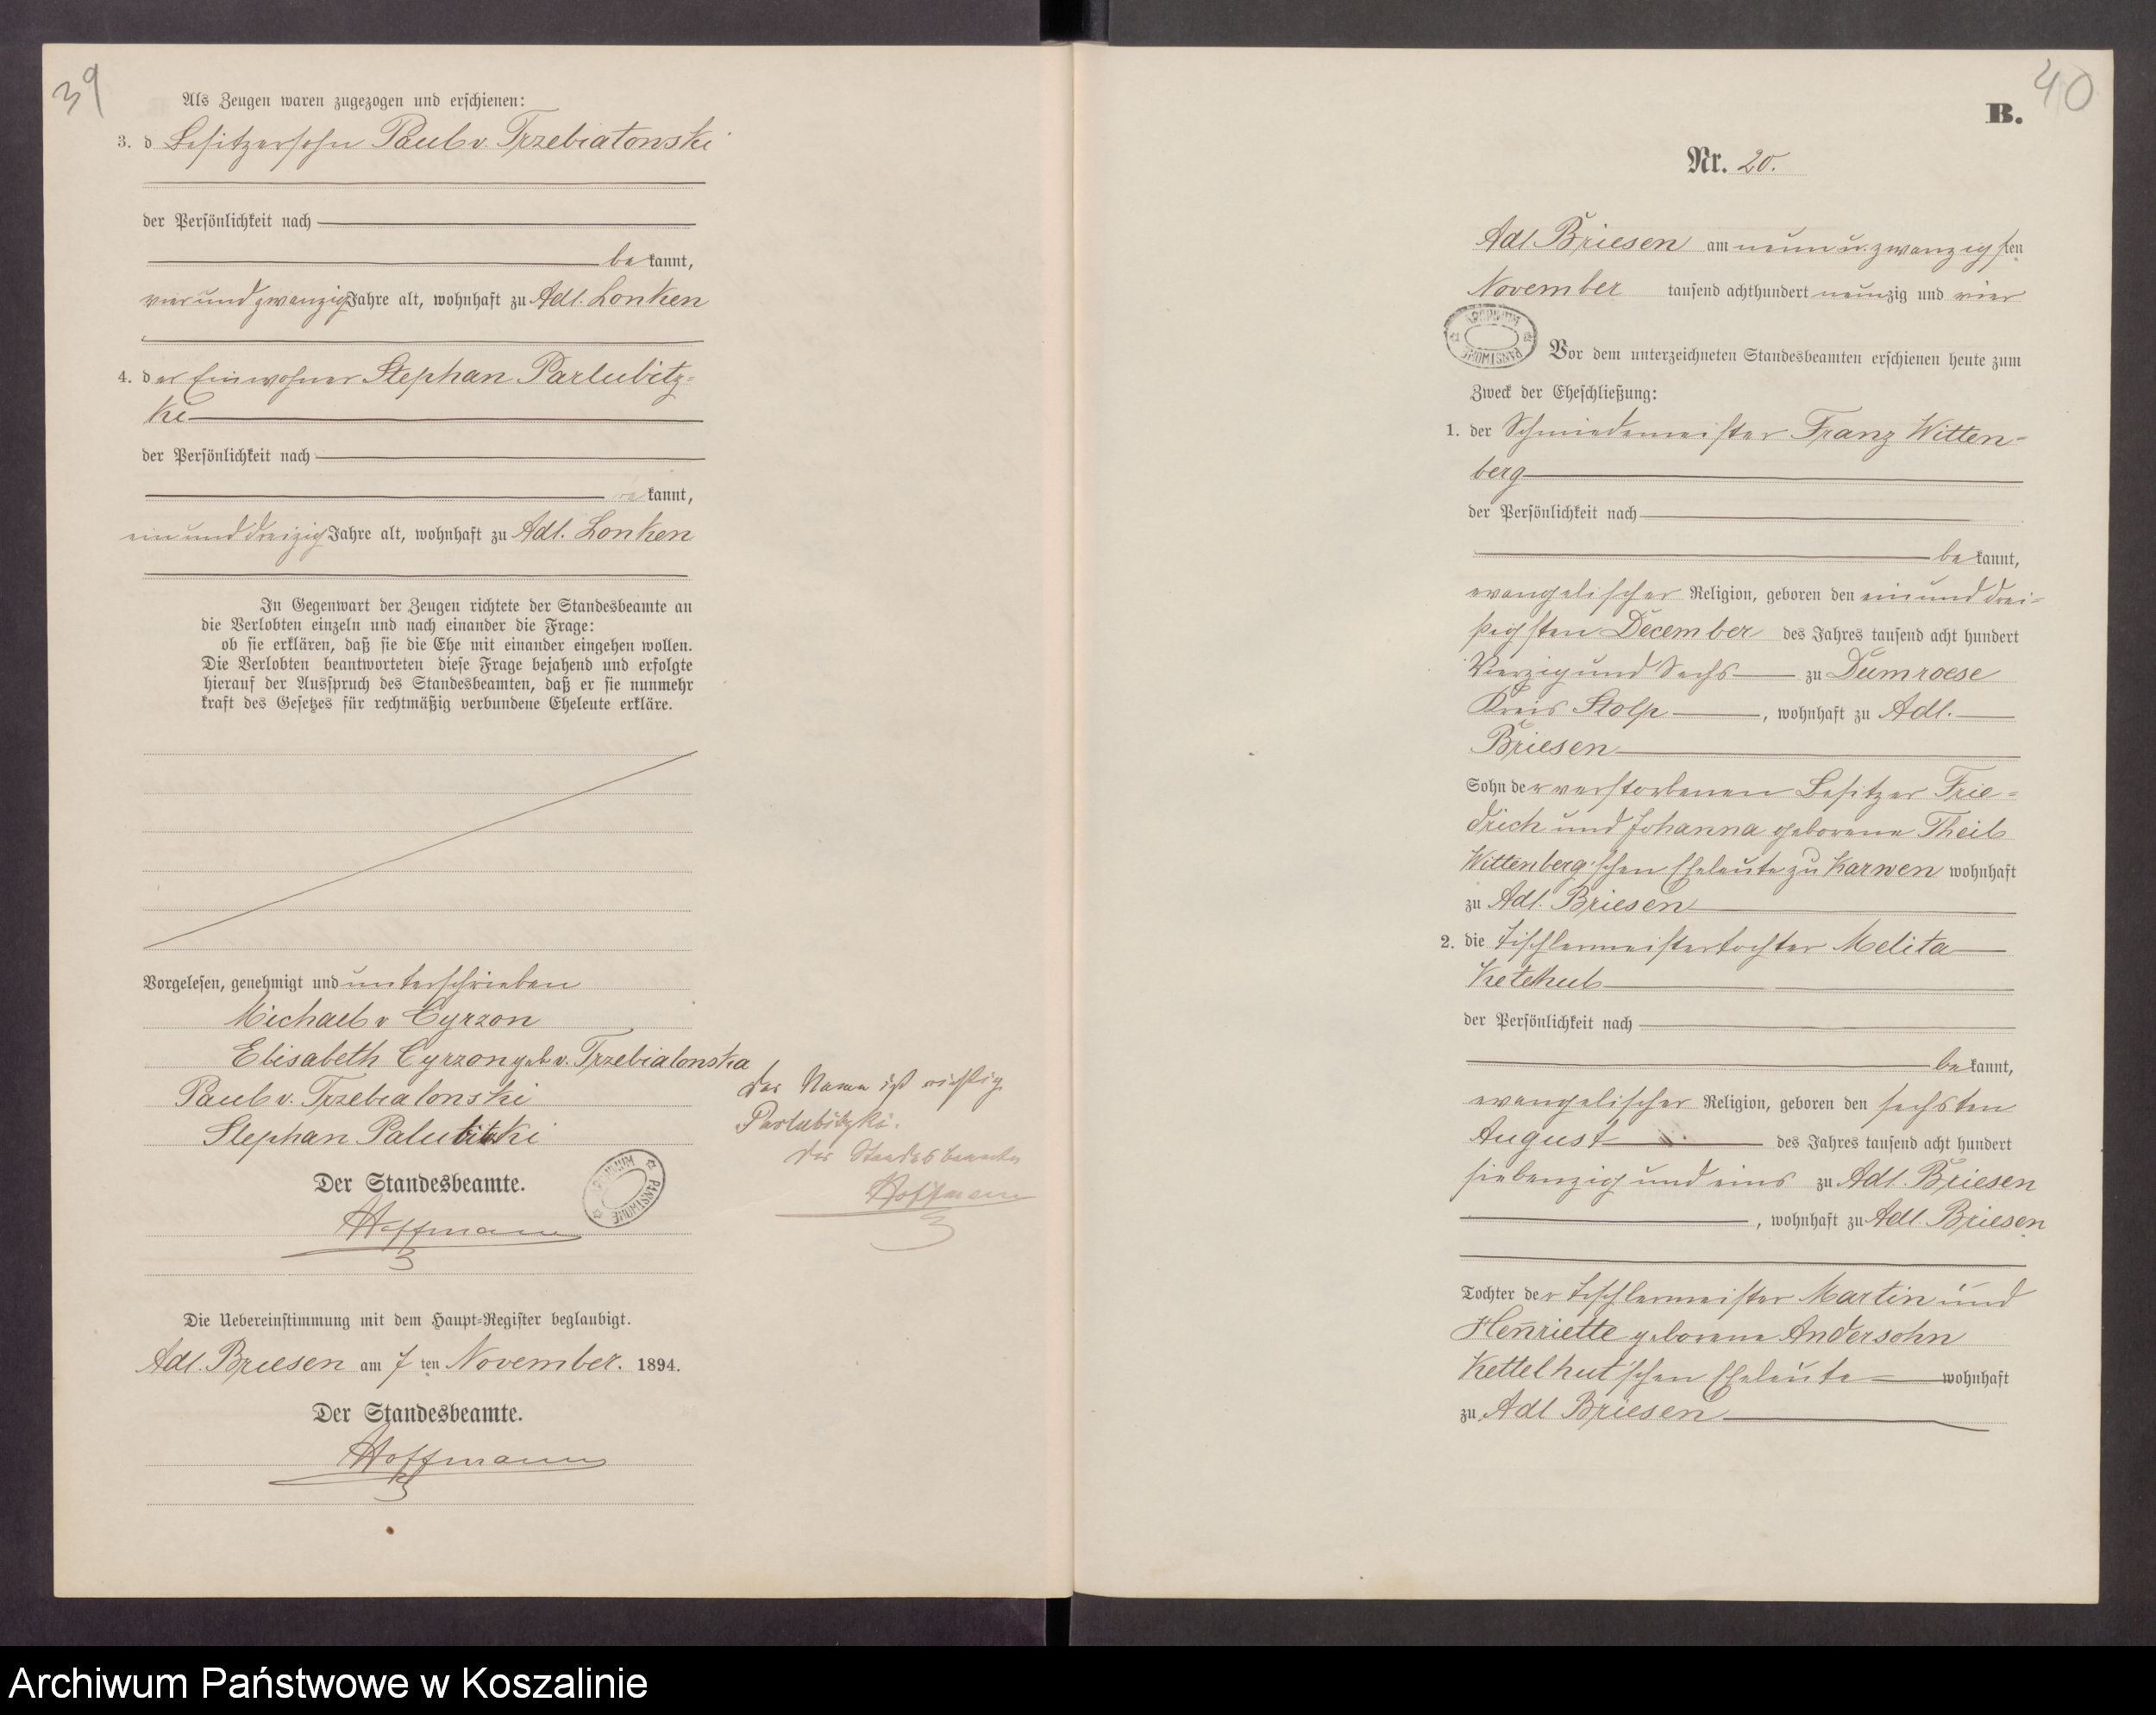 39
Als Zeugen waren zugezogen und erschienen:
3. d Besitzersohn Paul v. Trzebiatowski
der Persönlichkeit nach
be kannt,
vier und zwanzig Jahre alt, wohnhaft zu Adl. Lonken
4. der Einwohner Stephan Parlubitz=
ki
der Persönlichkeit nach
be kannt,
ein und dreizig Jahre alt, wohnhaft zu Adl. Lonken
In Gegenwart der Zeugen richtete der Standesbeamte an
die Verlobten einzeln und nach einander die Frage:
ob sie erklären, daß sie die Ehe mit einander eingehen wollen.
Die Verlobten beantworteten diese Frage bejahend und erfolgte
hierauf der Ausspruch des Standesbeamten, daß er sie nunmehr
kraft des Gesetzes für rechtmäßig verbundene Eheleute erkläre.
Vorgelesen, genehmigt und unterschrieben
Michael v Cyrzon
Elisabeth Cyrzon geb v. Trzebiatonska
Paul v. Trzebiatonski
Stephan Palubitzki
Der Name ist richtig
Parlubitzki.
Der Standesbeamte
Hoffmann
Der Standesbeamte.
ARCHIWUM PAŃSTWOWE
Hoffmann
Die Uebereinstimmung mit dem Haupt=Register beglaubigt.
Adl. Briesen am 7 ten November. 1894.
Der Standesbeamte.
Hoffmann
40
B.
Nr. 20.
Adl. Briesen am neun u. zwanzigsten
November tausend achthundert neunzig und vier
ARCHIWUM PAŃSTWOWE
Vor dem unterzeichneten Standesbeamten erschienen heute zum
Zweck der Eheschließung:
1. der Schmiedemeister Franz Witten=
berg
der Persönlichkeit nach
be kannt,
evangelischer Religion, geboren den ein und drei=
ßigsten December des Jahres tausend acht hundert
Vierzig und Sechs zu Dumroese
Kreis Stolp, wohnhaft zu Adl.
Briesen
Sohn der verstorbenen Besitzer Frie=
drich und Johanna geborene Theil
Wittenberg'schen Eheleute zu Karwen wohnhaft
zu Adl. Briesen
2. die Tischlermeistertochter Melita
Ketelhut
der Persönlichkeit nach
be kannt,
evangelischer Religion, geboren den sechsten
August des Jahres tausend acht hundert
siebenzig und eins zu Adl. Briesen
, wohnhaft zu Adl. Briesen
Tochter der Tischlermeister Martin und
Henriette geborene Andersohn
Kettelhut'schen Eheleute wohnhaft
zu Adl Briesen
Archiwum Państwowe w Koszalinie